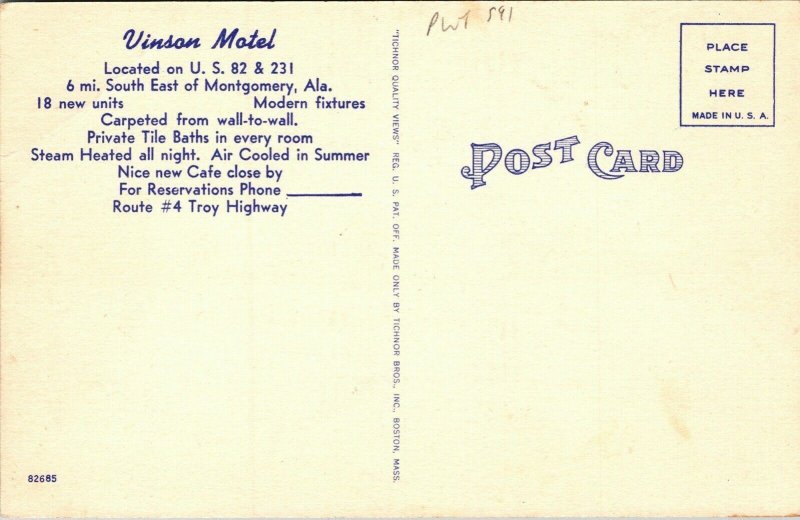 Vinson Motel
Located on U. S. 82 & 231
6 mi. South East of Montgomery, Ala.
18 new units Modern fixtures
Carpeted from wall-to-wall.
Private Tile Baths in every room
Steam Heated all night. Air Cooled in Summer
Nice new Cafe close by
For Reservations Phone
Route #4 Troy Highway
82685
"TICHNOR QUALITY VIEWS" REG. U. S. PAT. OFF. MADE ONLY BY TICHNOR BROS., INC., BOSTON, MASS.
591
POST CARD
PLACE
STAMP
HERE
MADE IN U. S. A.